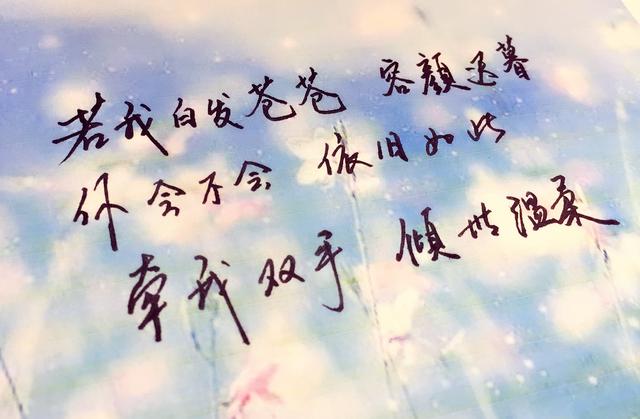 若我白发苍苍 容颜迟暮
你会不会 依旧如此
牵我双手 倾世温柔